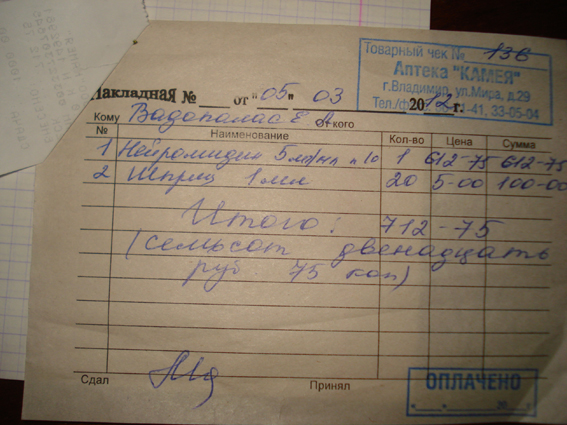 Товарный чек № 136
Аптека "КАМЕЯ"
г.Владимир, ул.Мира, д.29
Тел./ф 41, 33-05-04
Накладная № ___ от "05" 03 2012 г.
Кому Вадопалас Е А От кого
№ Наименование Кол-во Цена Сумма
1 Нейромидин 5 мг/мл №10 1 612-75 612-75
2 Шприц 1 мл 20 5-00 100-00
Итого: 712-75
(семьсот двенадцать
руб 75 коп)
Сдал Принял
ОПЛАЧЕНО